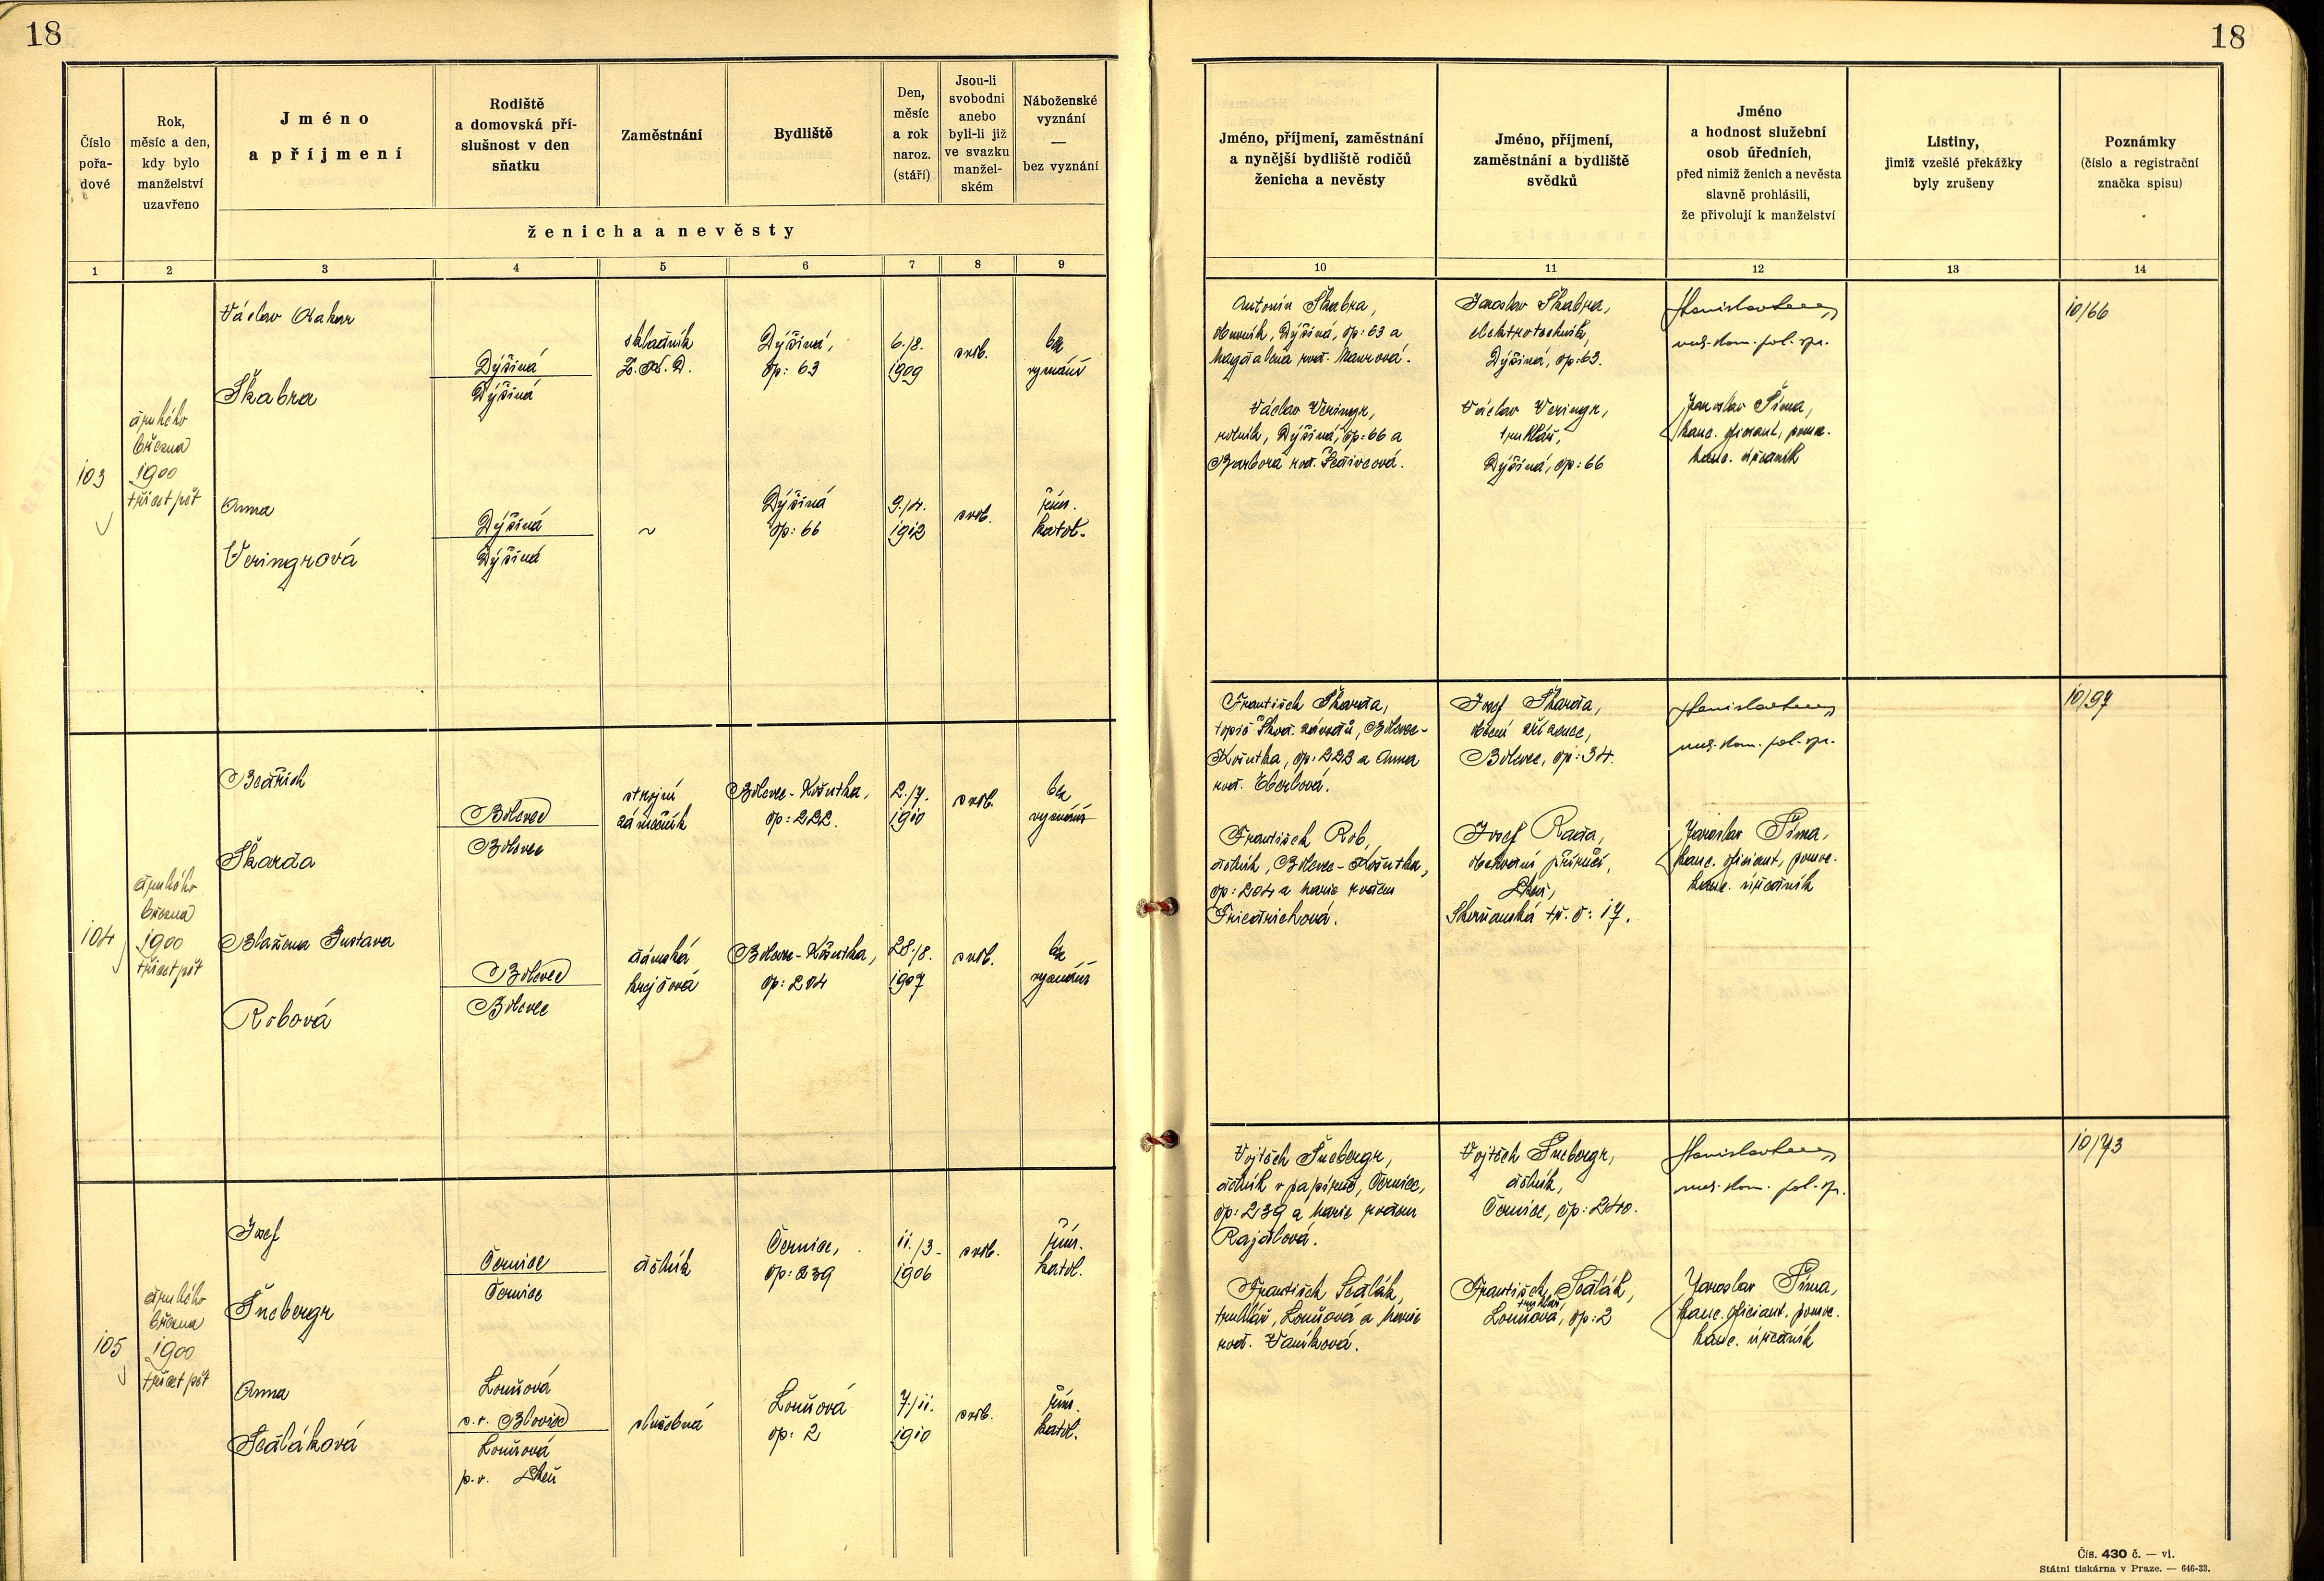 18
18
Číslo
pořa-
dové
Rok,
měsíc a den,
kdy bylo
manželství
uzavřeno
Jméno
a příjmení
Rodiště
a domovská pří-
slušnost v den
sňatku
Zaměstnání
Bydliště
Den,
měsíc
a rok
naroz.
(stáří)
Jsou-li
svobodni
anebo
byli-li již
ve svazku
manžel-
ském
Náboženské
vyznání
—
bez vyznání
ženicha a nevěsty
1 2 3 4 5 6 7 8 9
Jméno, příjmení, zaměstnání
a nynější bydliště rodičů
ženicha a nevěsty
Jméno, příjmení,
zaměstnání a bydliště
svědků
Jméno
a hodnost služební
osob úředních,
před nimiž ženich a nevěsta
slavně prohlásili,
že přivolují k manželství
Listiny,
jimiž vzešlé překážky
byly zrušeny
Poznámky
(číslo a registrační
značka spisu)
10 11 12 13 14
103
druhého
března
1900
třicet pět
Václav Otakar
Škabra
Dýšina
Dýšina
skladník
Z.K.D.
Dýšina,
čp: 63
6./8.
1909
svob.
bez
vyznání
Anna
Veringrová
Dýšina
Dýšina
~
Dýšina
čp: 66
9./4.
1912
svob.
řím.
katol.
Antonín Škabra,
obuvník, Dýšina, čp: 63 a
Magdalena rod. Maurová.
Václav Veringr,
rolník, Dýšina, čp: 66 a
Barbora rod. Šedivcová.
Jaroslav Škabra,
elektrotechnik,
Dýšina, čp: 63.
Václav Veringr,
truhlář,
Dýšina, čp: 66
kom. pol. spr.
Jaroslav Šíma,
kanc. oficiant, pomc.
kanc. úředník
10/66
104
druhého
března
1900
třicet pět
Bedřich
Škarda
Bolevec
Bolevec
strojní
zámečník
Bolevec-Košutka,
čp: 222.
2./7.
1910
svob.
bez
vyznání
Blažena Gustava
Robová
Bolevec
Bolevec
dámská
krejčová
Bolevec-Košutka,
čp: 204
28./8.
1907
svob.
bez
vyznání
František Škarda,
topič Škod. závodů, Bolevec-
Košutka, čp: 222 a Anna
rod. Eberlová.
František Rob,
dělník, Bolevec-Košutka,
čp: 204 a Marie rodem
Friedrichová.
Josef Škarda,
obecní zřízenec,
Bolevec, čp: 34.
Josef Rada,
obchodní příručí,
Plzeň,
Skvrňanská tř. č: 17.
kom. pol. spr.
Jaroslav Šíma,
kanc. oficiant, pomc.
kanc. úředník
10/97
105
druhého
března
1900
třicet pět
Josef
Šnebergr
Černice
Černice
dělník
Černice,
čp: 239
11./3.
1906
svob.
řím.
katol.
Anna
Sedláková
Louňová
s.o. Blovice
Louňová
p.o. Plzeň
služebná
Louňová
čp: 2
7./11.
1910
svob.
řím.
katol.
Vojtěch Šnebergr,
dělník v papírně, Černice,
čp: 239 a Marie rodem
Rajdlová.
František Sedlák,
truhlář, Louňová a Marie
rod. Vaníková.
Vojtěch Šnebergr,
dělník,
Černice, čp: 240.
František Sedlák,
truhlář,
Louňová, čp: 2
kom. pol. spr.
Jaroslav Šíma,
kanc. oficiant. pomc.
kanc. úředník
10/73
Čís. 430 č. — vl.
Státní tiskárna v Praze. — 646-33.